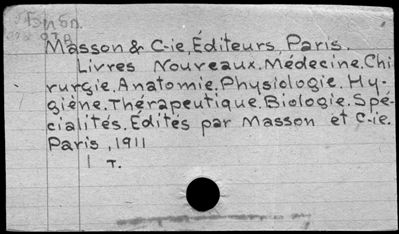 Masson & C-ie, Éditeurs, Paris.
Livres Nouveaux. Médecine. Chi
rurgie. Anatomie. Physiologie. Hy-
giène. Thérapeutique. Biologie. Spé-
cialités. Edités par Masson et C-ie.
Paris, 1911
1 т.